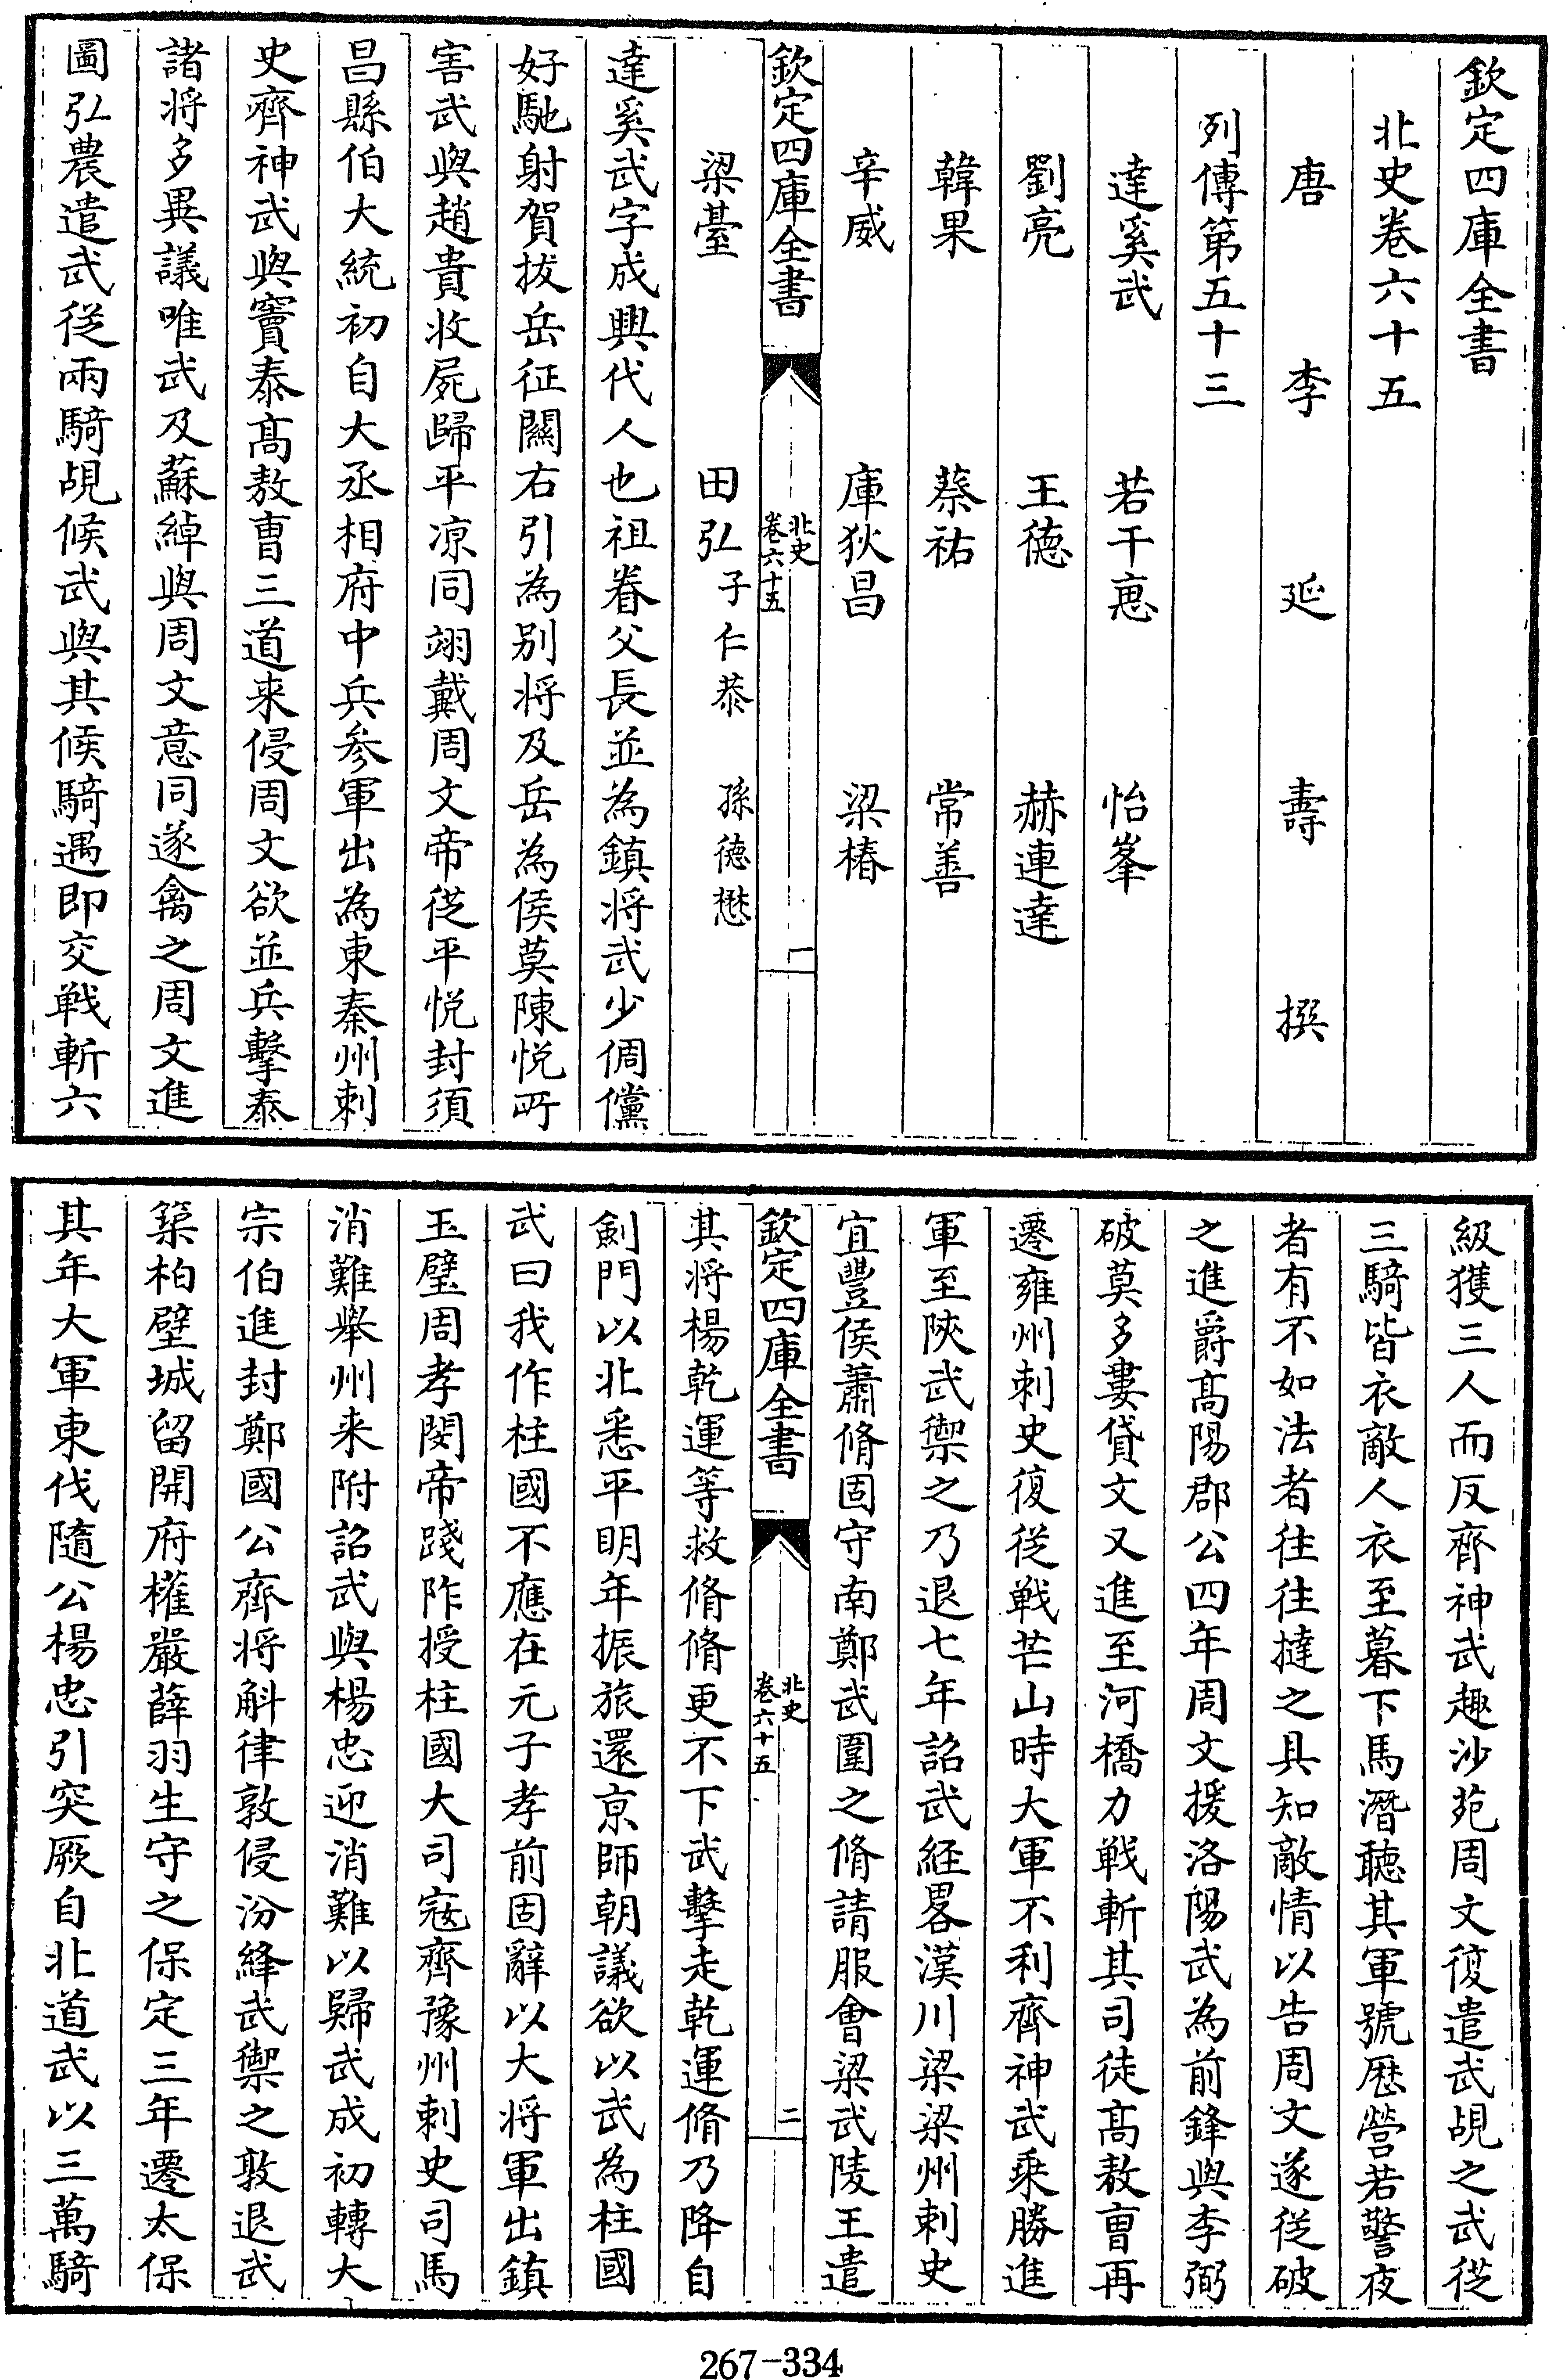 欽定四庫全書
北史卷六十五
唐李延壽撰
列傳第五十三
達奚武　若干惠　怡峯
劉亮　王德　赫連達
韓果　蔡祐　常善
辛威　庫狄昌　梁椿
欽定四庫全書　北史卷六十五　一
梁臺　田弘子仁恭　孫德懋
達奚武字成興代人也祖眷父長並為鎮将武少倜儻
好馳射賀拔岳征關右引為别将及岳為侯莫陳悦所
害武與趙貴收屍歸平凉同翊戴周文帝從平悦封須
昌縣伯大統初自大丞相府中兵參軍出為東秦州刺
史齊神武與竇泰髙敖曹三道来侵周文欲並兵擊泰
諸将多異議唯武及蘇綽與周文意同遂禽之周文進
圖弘農遣武從兩騎覘候武與其候騎遇即交戰斬六
級獲三人而反齊神武趣沙苑周文復遣武覘之武從
三騎皆衣敵人衣至暮下馬潛聽其軍號歴營若警夜
者有不如法者往往撻之具知敵情以告周文遂從破
之進爵髙陽郡公四年周文援洛陽武為前鋒與李弼
破莫多婁貸文又進至河橋力戰斬其司徒髙敖曹再
遷雍州刺史復從戰芒山時大軍不利齊神武乗勝進
軍至陜武禦之乃退七年詔武經畧漢川梁梁州刺史
宜豐侯蕭脩固守南鄭武圍之脩請服會梁武陵王遣
欽定四庫全書　北史卷六十五　二
其将楊乾運等救脩脩更不下武擊走乾運脩乃降自
劍門以北悉平明年振旅還京師朝議欲以武為柱國
武曰我作柱國不應在元子孝前固辭以大将軍出鎮
玉璧周孝閔帝踐阼授柱國大司寇齊豫州刺史司馬
消難舉州来附詔武與楊忠迎消難以歸武成初轉大
宗伯進封鄭國公齊将斛律敦侵汾絳武禦之敦退武
築柏壁城留開府權嚴薛羽生守之保定三年遷太保
其年大軍東伐隨公楊忠引突厥自北道武以三萬騎
267-334